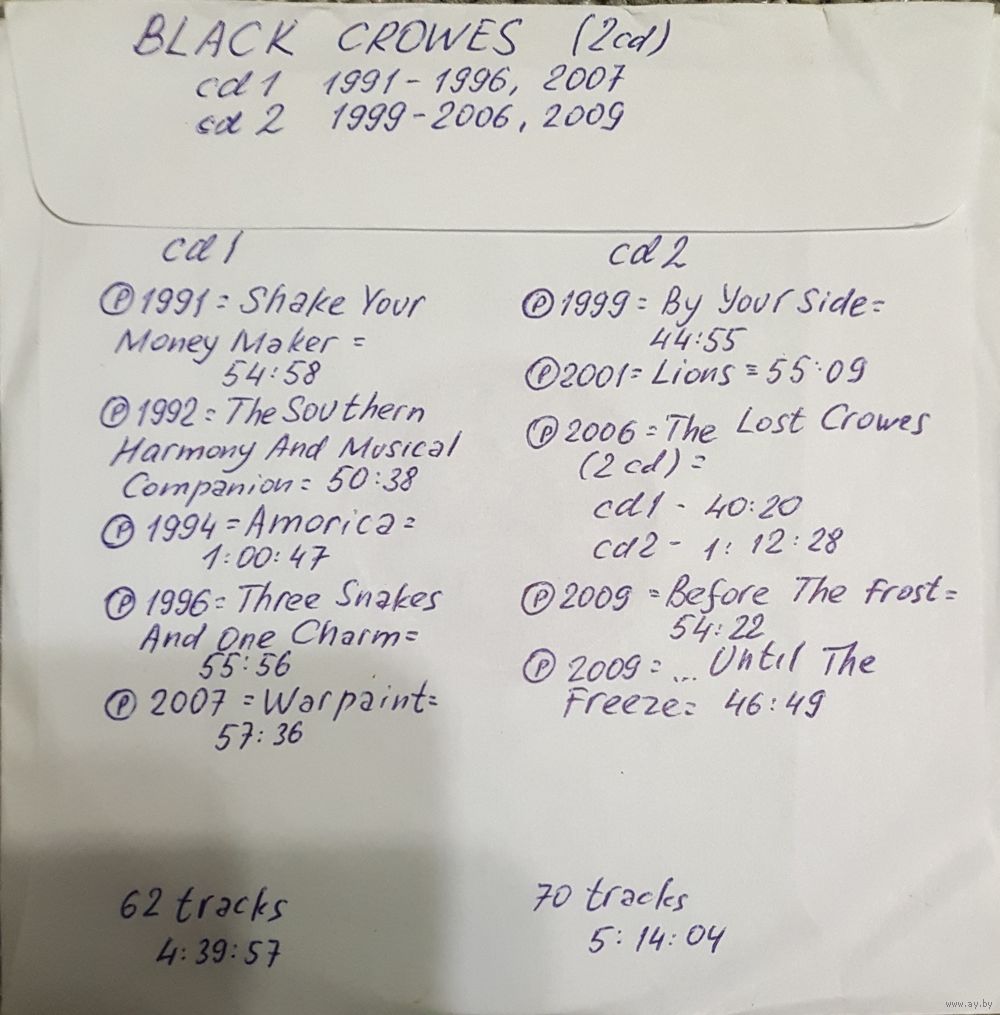 BLACK CROWES (2cd)
cd 1 1991-1996, 2007
cd 2 1999-2006, 2009
cd 1
Ⓟ 1991 = Shake Your
Money Maker =
54:58
Ⓟ 1992 = The Southern
Harmony And Musical
Companion = 50:38
Ⓟ 1994 = Amorica =
1:00:47
Ⓟ 1996 = Three Snakes
And One Charm =
55:56
Ⓟ 2007 = Warpaint =
57:36
62 tracks
4:39:57
cd 2
Ⓟ 1999 = By Your Side =
44:55
Ⓟ 2001 = Lions = 55:09
Ⓟ 2006 = The Lost Crowes
(2 cd) =
cd1 - 40:20
cd2 - 1:12:28
Ⓟ 2009 = Before The Frost =
54:22
Ⓟ 2009 = ... Until The
Freeze = 46:49
70 tracks
5:14:04
www.ay.by